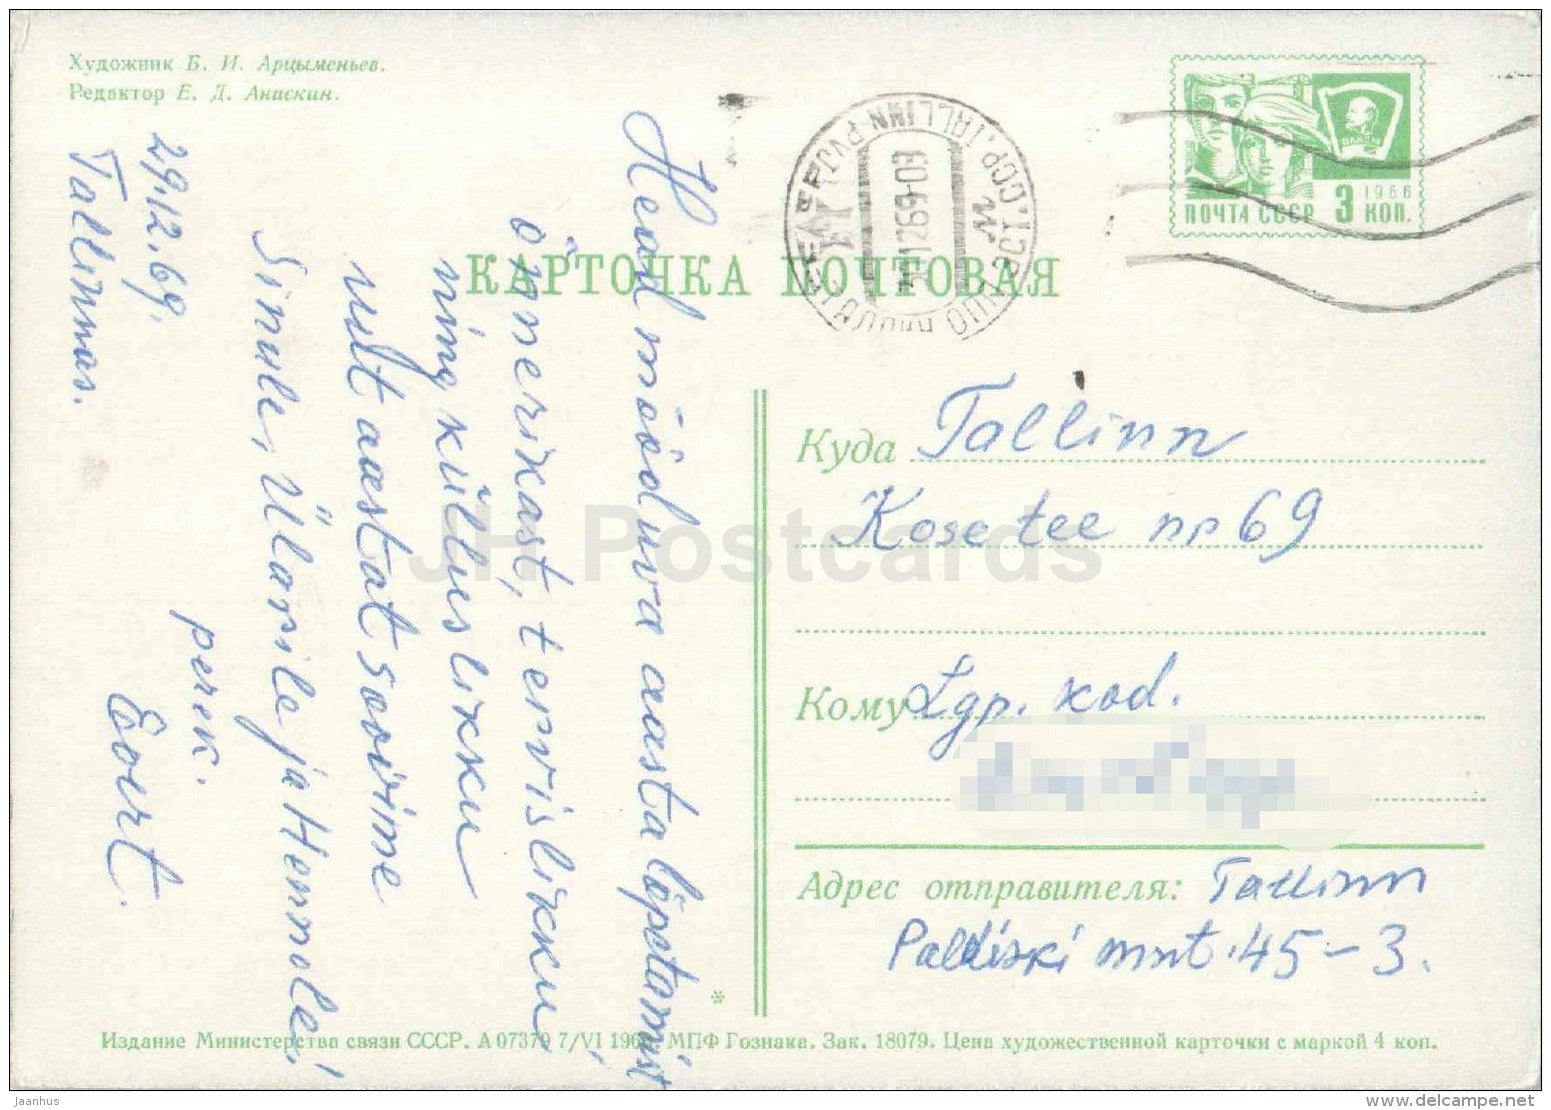 Художник Б. И. Арцыменьев.
Редактор Е. Д. Анискин.
ПОЧТА СССР 3 КОП.
1966
ВЛКСМ
КАРТОЧКА ПОЧТОВАЯ
Head mööduva aasta lõpetamist
õnnerikast, tervislikku
ning külluslikku
uut aastat soovime
Sinule, Ülarile ja Hennole!
perek.
29.12.69.
Tallinnas.
Куда Tallinn
Kose tee nr 69
Кому Lgp. kod.
Адрес отправителя: Tallinn
Paldiski mnt. 45-3.
JH Postcards
Издание Министерства связи СССР. А 07379 7/VI МПФ Гознака. Зак. 18079. Цена художественной карточки с маркой 4 коп.
Jaanhus
www.delcampe.net